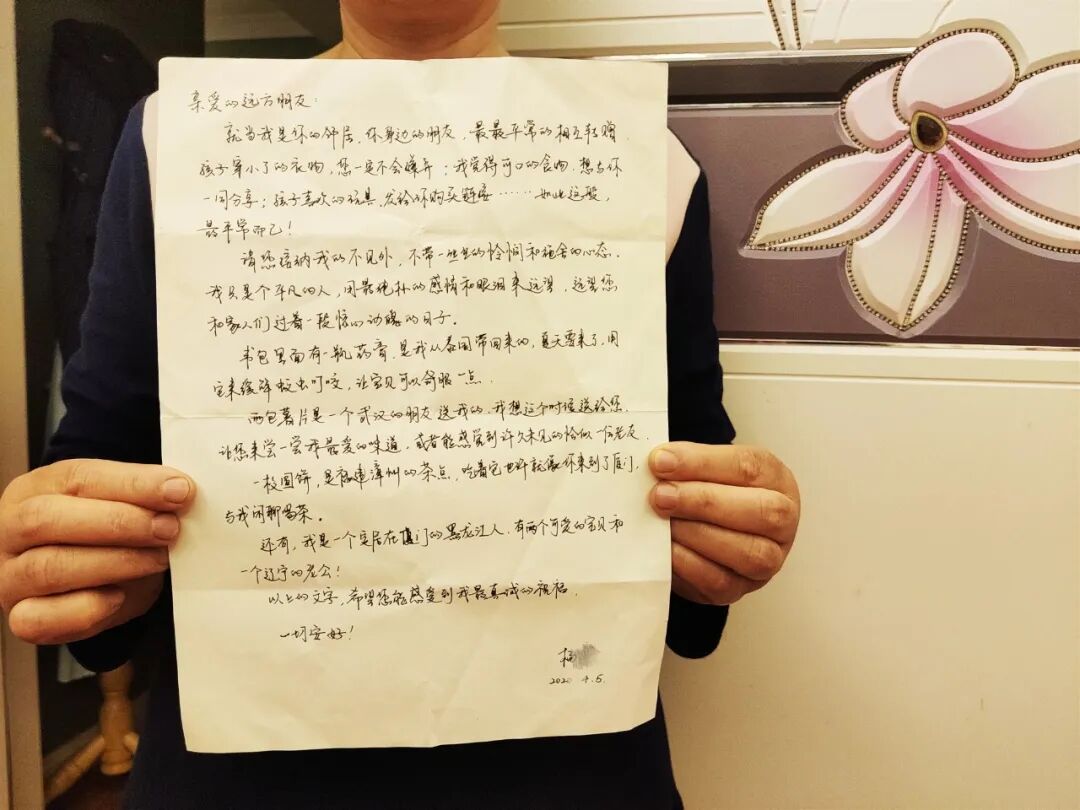 亲爱的远方朋友：
就当我是你的邻居，你身边的朋友，最最平常的相互转赠，
孩子穿小了的衣物，您一定不会嫌弃；我觉得可口的食物，想与你
一同分享；孩子喜欢的玩具，发给你购买链接……如此这般，
最平常而已！
请您接纳我的不见外，不带一丝的怜悯和施舍的心态。
我只是个平凡的人，用最纯朴的感情和眼泪来远望，远望您
和家人们过着一段惊心动魄的日子。
书包里面有一瓶药膏，是我从泰国带回来的，夏天要来了，用
它来缓解蚊虫叮咬，让宝贝可以舒服一点。
两包薯片是一个武汉的朋友送我的，我想这个时候送给您，
让您来尝一尝我最爱的味道，或者能感觉到许久未见的恰似一位老友。
一枚圆饼，是福建漳州的茶点，吃着它也许就像你来到了厦门，
与我闲聊喝茶。
还有，我是一个定居在厦门的黑龙江人，有两个可爱的宝贝和
一个辽宁的老公！
以上的文字，希望您能感受到我最真诚的祝福。
一切安好！
杨
2020 4.5.